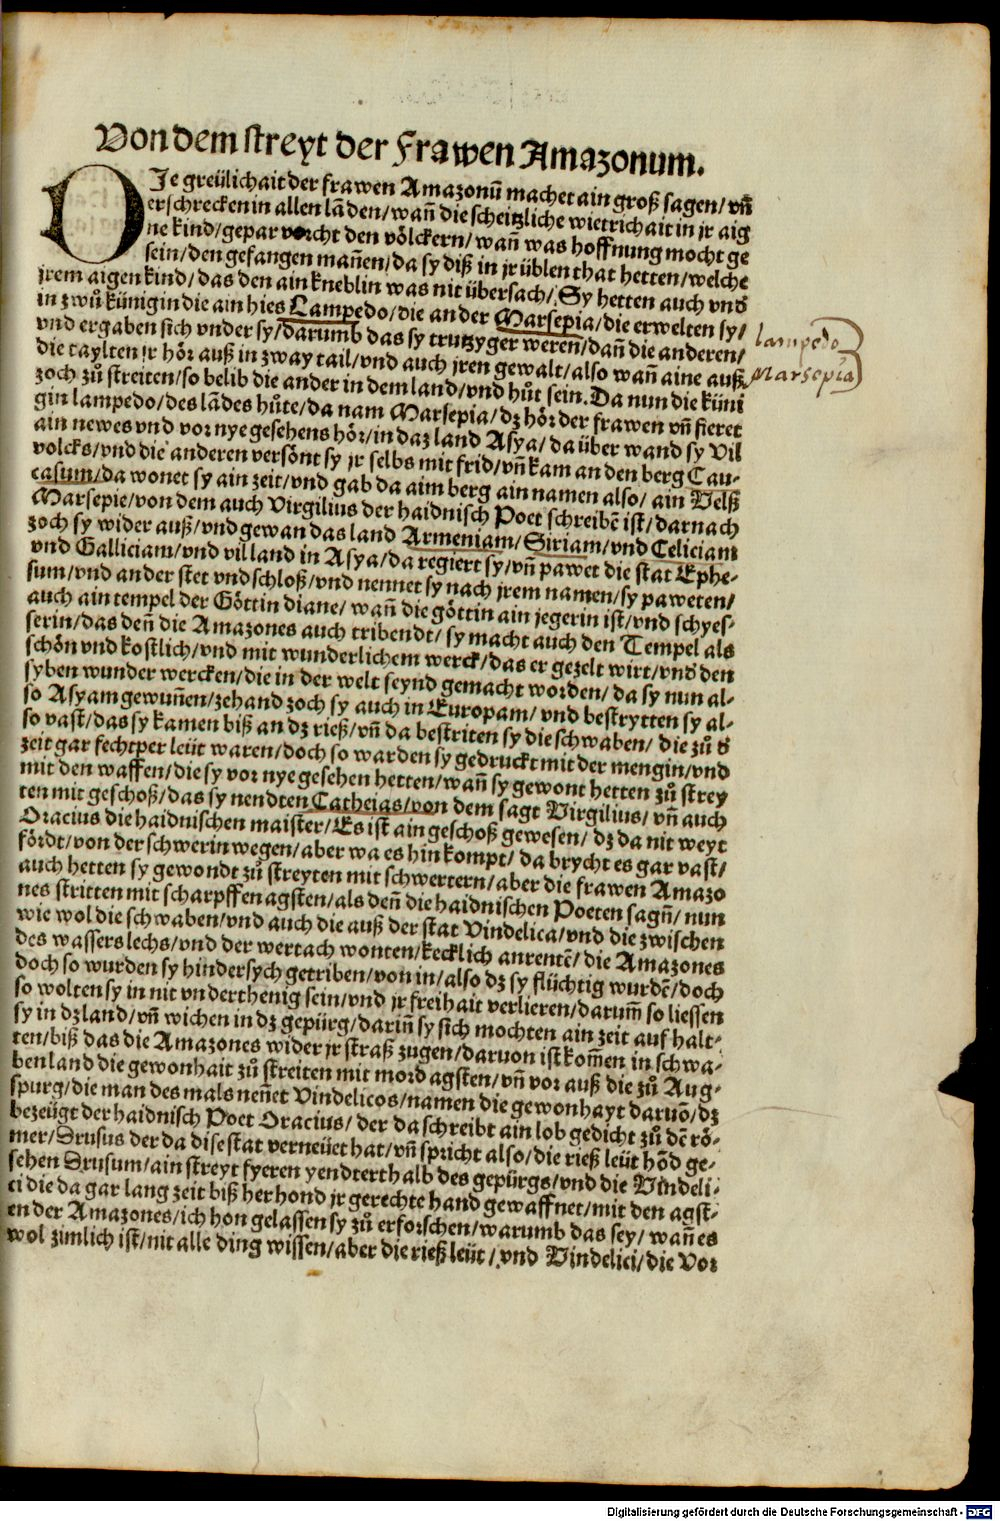 Von dem streyt der Frawen Amazonum.
DJe greülichait der frawen Amazonū machet ain groß sagen/ vn̄
erschrecken in allen lādē/wan̄ die scheitzliche wietrichait in jr aig
ne kind/gepar vorcht den völckern/wan̄ was hoffnung mocht ge
sein/den gefangen man̄en/da sy diß in jr üblen that hetten/welche
jrem aigen kind/das den ain kneblin was nit übersach/ Sy hetten auch vnd
in zwů künigin die ain hies Lampedo/die an der Marsepia/die erwelten sy/
vnd ergaben sich vnder sy/darumb das sy trutzyger weren/dan̄ die anderen/
lampedo
die taylten jr hör auß in zway tail/vnd auch jren gewalt/also wan̄ aine auß
Marsepia
zoch zů streiten/so belib die ander in dem land/vnd hůt sein. Da nun die küni
gin lampedo/des lādes hůte/da nam Marsepia/dz hör der frawen vn̄ fieret
ain newes vnd vor nye gesehens hör/in daz land Asya/da über wand sy vil
volcks/vnd die anderen versönt sy jr selbs mit frid/vn̄ kam an den berg Cau-
casum/da wonet sy ain zeit/vnd gab da aim berg ain namen also/ ain Velß
Marsepie/von dem auch Virgilius der haidnisch Poet schreibē ist/darnach
zoch sy wider auß/vnd gewan das land Armeniam/Siriam/vnd Celiciam
vnd Galliciam/vnd vil land in Asya/da regiert sy/vn̄ pawet die stat Ephe-
sum/vnd ander stet vnd schloß/vnd nennet sy nach jrem namen/sy paweten/
auch ain tempel der Göttin diane/ wan̄ die göttin ain jegerin ist/vnd schyes-
serin/das den̄ die Amazones auch tribendt/ sy macht auch den Tempel als
schön vnd kostlich/vnd mit wunderlichem werck/das er gezelt wirt/vnd den
syben wunder wercken/die in der welt seynd gemacht worden/ da sy nun al-
so Asyam gewun̄en/zehand zoch sy auch in Europam/ vnd bestrytten sy al-
so vast/das sy kamen biß an dz rieß/vn̄ da bestriten sy die schwaben/ die zů d
zeit gar fechtper leüt waren/doch so warden sy gedruckt mit der mengin/vnd
mit den waffen/die sy vor nye gesehen hetten/wan̄ sy gewont hetten zů strey
ten mit geschoß/das sy nendten Catheias/von dem sagt Virgilius/ vn̄ auch
Oracius die haidnischen maister/Es ist ain geschoß gewesen/ dz da nit weyt
fördt/von der schwerin wegen/aber wa es hin kompt/ da brycht es gar vast/
auch hetten sy gewondt zů streyten mit schwertern/aber die frawen Amazo
nes stritten mit scharpffen agsten/als den̄ die haidnischen Poeten sagn̄/ nun
wie wol die schwaben/vnd auch die auß der stat Vindelica/vnd die zwischen
des wassers lechs/vnd der wertach wonten/kecklich anrentē/ die Amazones
doch so wurden sy hindersych getriben/von in/also dz sy flüchtig wurdē/doch
so wolten sy in nit vnderthenig sein/vnd jr freihait verlieren/darum̄ so liessen
sy in dz land/vn̄ wichen in dz gepürg/darin̄ sy sich mochten ain zeit auf halt-
ten/biß das die Amazones wider jr straß zugen/daruon ist kom̄en in schwa-
ben land die gewonhait zů streiten mit mord agsten/vn̄ vor auß die zů Aug-
spurg/die man des mals nen̄et Vindelicos/namen die gewonhayt daruō/dz
bezeügt der haidnisch Poet Oracius/ der da schreibt ain lob gedicht zů dē rö-
mer/Drusus der da dise stat verneüet hat/vn̄ spricht also/die rieß leüt hōd ge-
sehen Drusum/ain streyt fyeren yendterthalb des gepürgs/vnd die Vindeli-
ci die da gar lang zeit biß her hond jr gerechte hand gewaffnet/mit den agst-
en der Amazones/ich hon gelassen sy zů erforschen/warumb das sey/ wan̄ es
wol zimlich ist/nit alle ding wissen/aber die rieß leüt/ vnd Vindelici/die vor
Digitalisierung gefördert durch die Deutsche Forschungsgemeinschaft - DFG